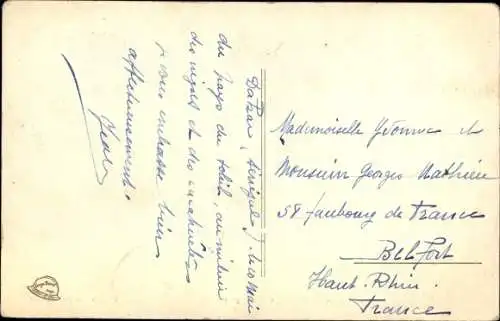 Dakar, Sénégal
du pays du soleil, au milieu
des nègres et des cacahuètes
je vous embrasse bien
affectueusement.
Mademoiselle Yvonne et
Monsieur Georges Mathieu
58 faubourg de France
Belfort
Haut-Rhin
France